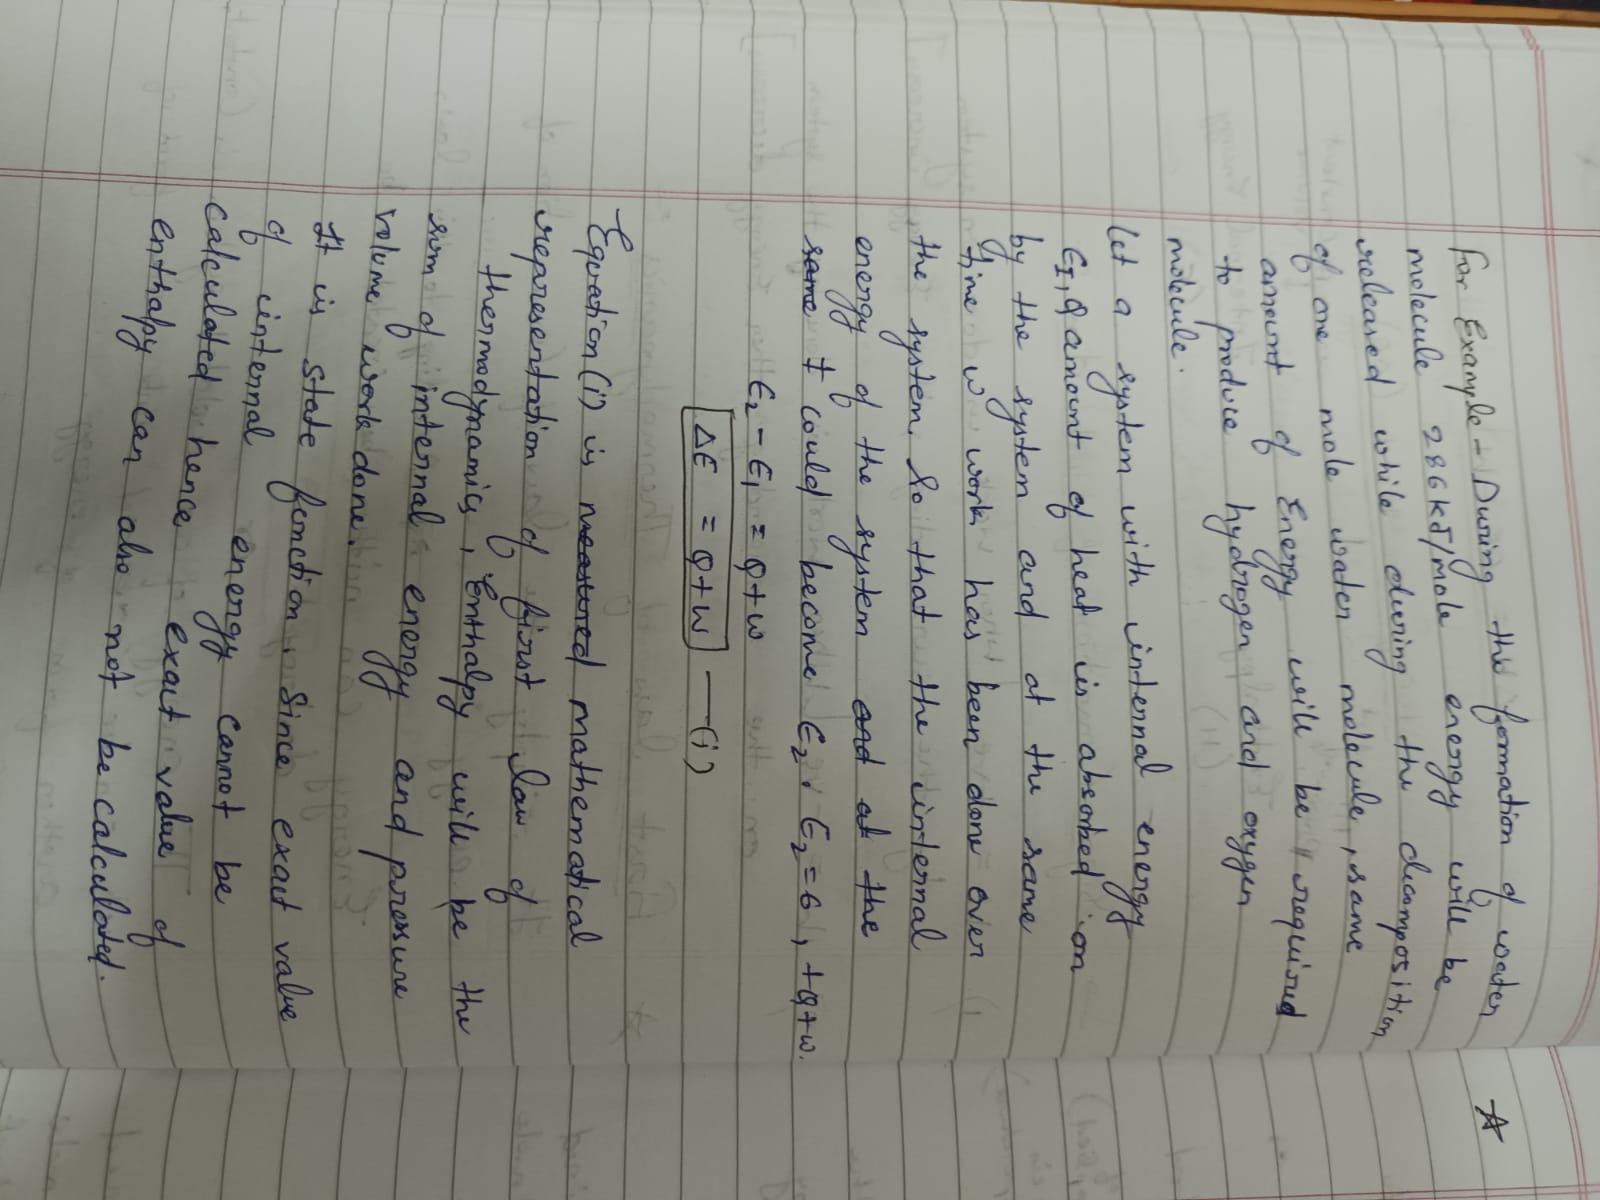 For Example - During the formation of water
molecule 286kJ/mole energy will be
released while during the dicomposition
of one mole water molecule, same
amount of Energy will be required
to produce hydrogen and oxygen
molecule.
Let a system with internal energy
E1, Q amount of heat is absorbed on
by the system and at the same
time w work has been done over
the system. So that the internal
energy of the system and at the
same t could become E2. E2 = 6, + Q + w.
E2 - E1 = Q + w
ΔE = Q + w — (i)
Equation (i) is measured mathematical
representation of first law of
thermodynamics, Enthalpy will be the
sum of internal energy and pressure
volume work done.
It is state function. Since exact value
of internal energy cannot be
calculated hence exact value of
enthalpy can also not be calculated.